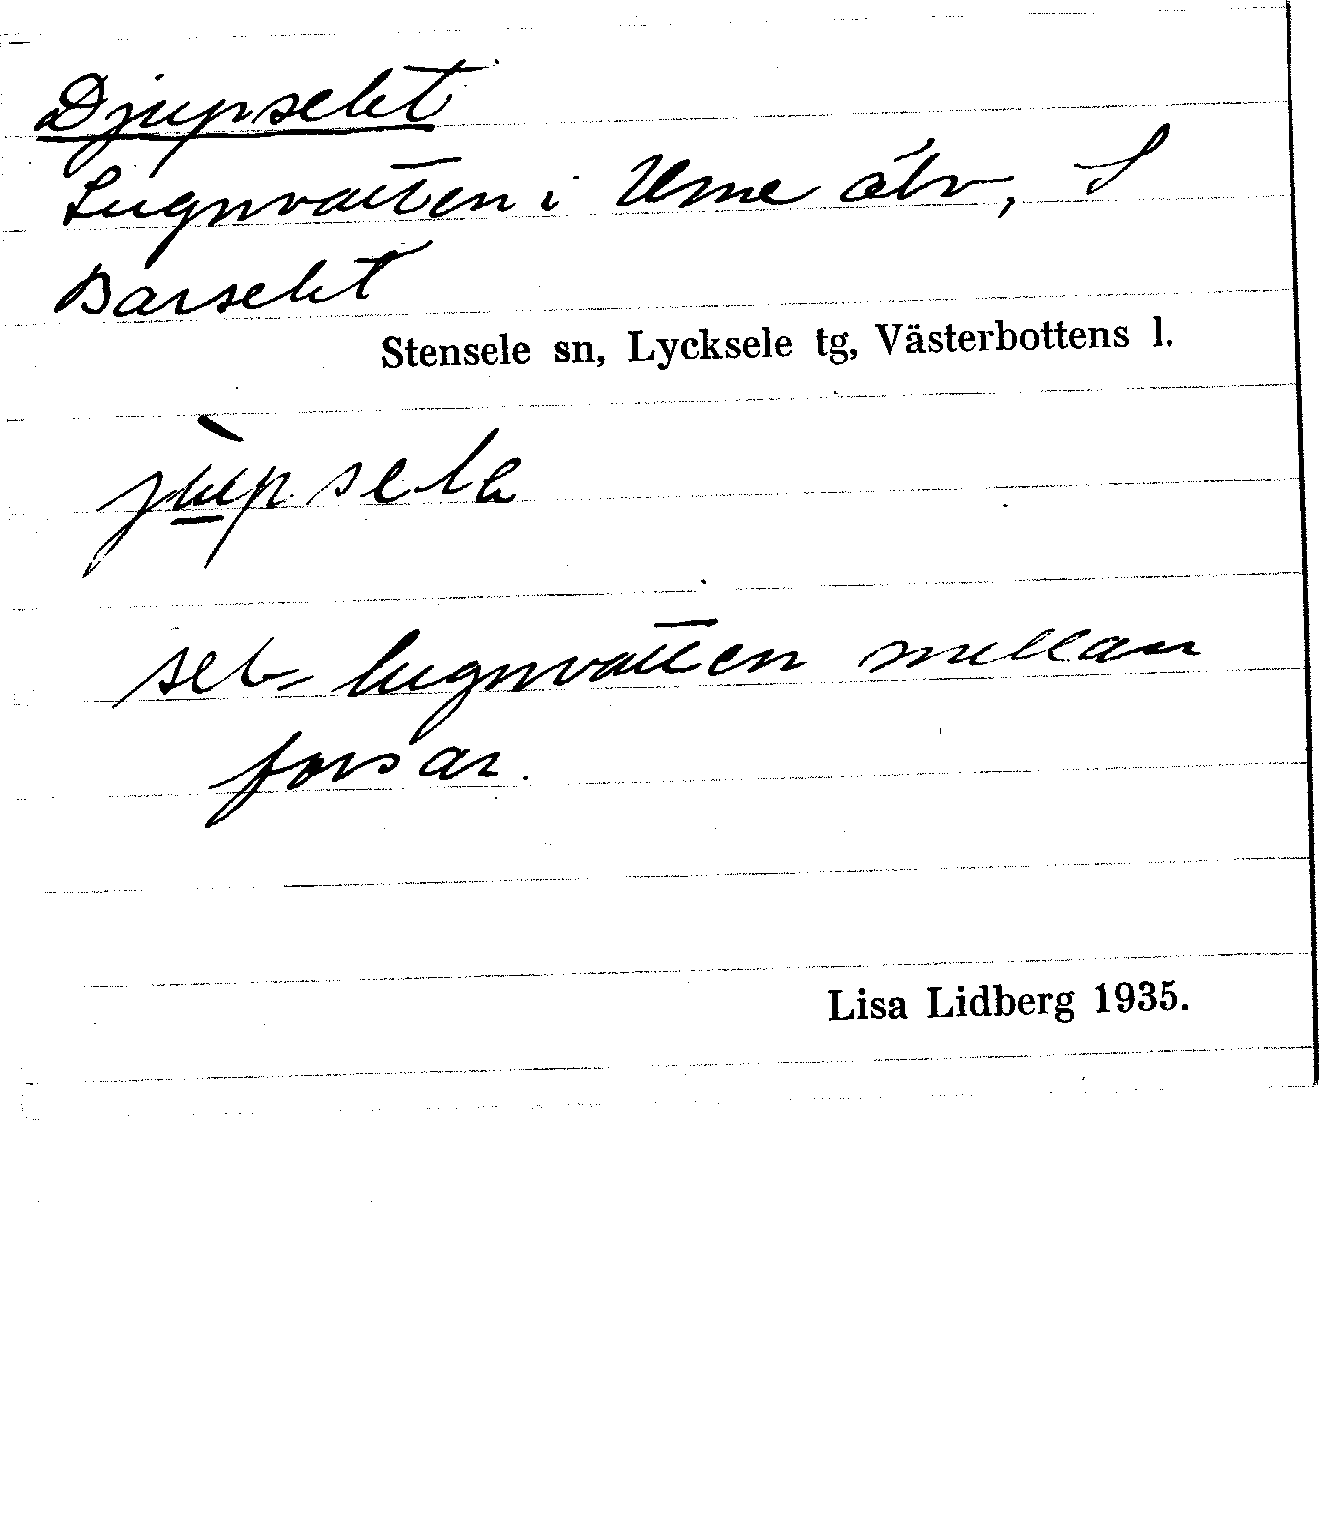 Djupselet
Lugnvatten i Ume älv, S
Barselet
Stensele sn, Lycksele tg, Västerbottens l.
jùpsela
sel = lugnvatten mellan
forsar.
Lisa Lidberg 1935.